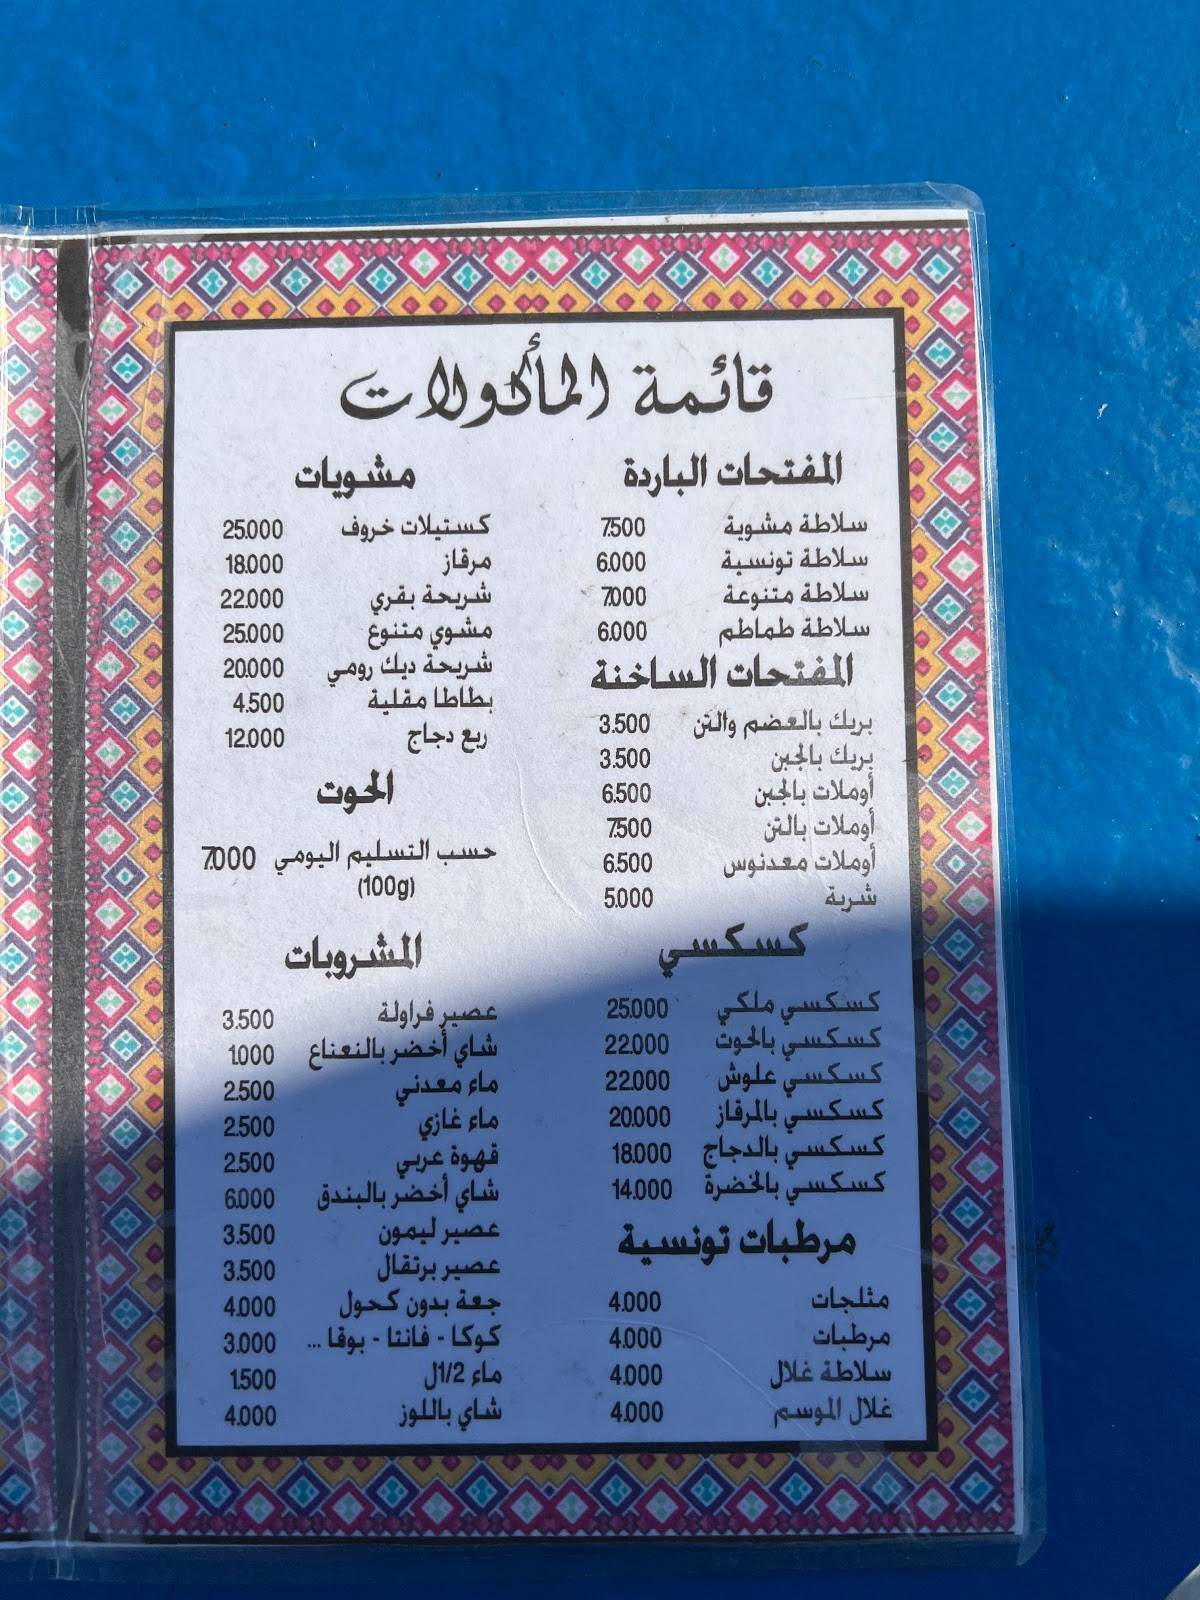 قائمة المأكولات
المفتحات الباردة
سلاطة مشوية 7.500
سلاطة تونسية 6.000
سلاطة متنوعة 7.000
سلاطة طماطم 6.000
المفتحات الساخنة
بريك بالعضم والتن 3.500
بريك بالجبن 3.500
أوملات بالجبن 6.500
أوملات بالتن 7.500
أوملات معدنوس 6.500
شربة 5.000
كسكسي
كسكسي ملكي 25.000
كسكسي بالحوت 22.000
كسكسي علوش 22.000
كسكسي بالمرقاز 20.000
كسكسي بالدجاج 18.000
كسكسي بالخضرة 14.000
مرطبات تونسية
مثلجات 4.000
مرطبات 4.000
سلاطة غلال 4.000
غلال الموسم 4.000
مشويات
كستيلات خروف 25.000
مرقاز 18.000
شريحة بقري 22.000
مشوي متنوع 25.000
شريحة ديك رومي 20.000
بطاطا مقلية 4.500
ربع دجاج 12.000
الحوت
حسب التسليم اليومي 7.000
(100g)
المشروبات
عصير فراولة 3.500
شاي أخضر بالنعناع 1.000
ماء معدني 2.500
ماء غازي 2.500
قهوة عربي 2.500
شاي أخضر بالبندق 6.000
عصير ليمون 3.500
عصير برتقال 3.500
جعة بدون كحول 4.000
كوكا - فانتا - بوقا ... 3.000
ماء 1/2ل 1.500
شاي باللوز 4.000